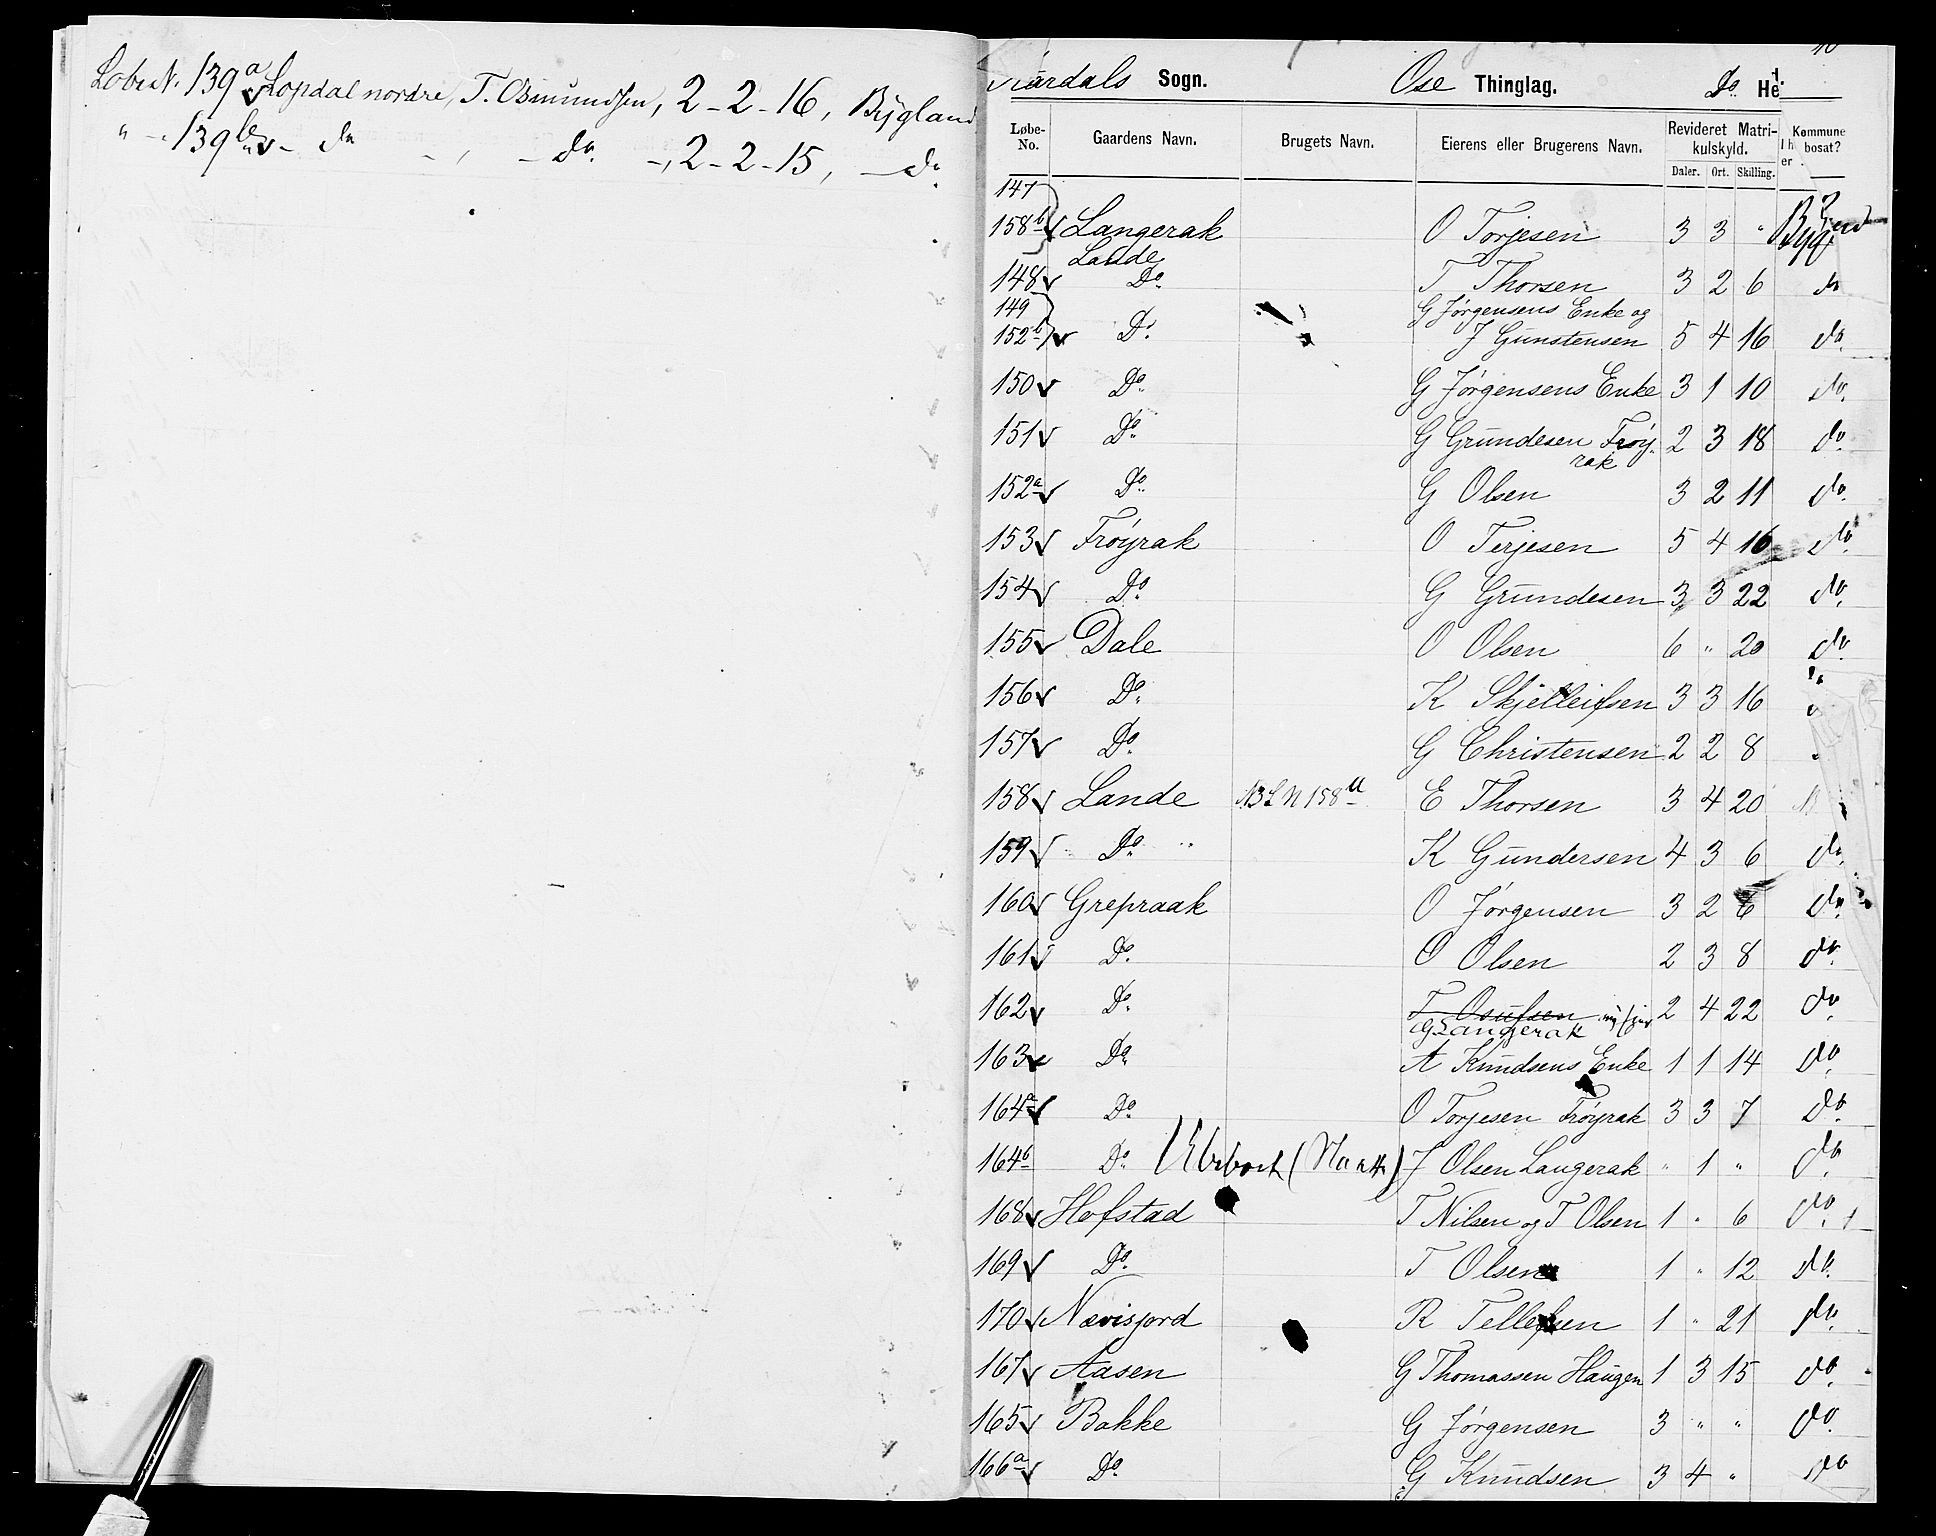 Løbe N. 139a Lopdal nordre, T. Osmundsen, 2-2-16, Bygland
" - . 139b - do - , - Do. -, 2-2-15, - do.
Aardals Sogn. Ose Thinglag. Do. He
Løbe-No. Gaardens Navn. Brugets Navn. Eierens eller Brugerens Navn. Revideret Matrikulskyld. Kommune bosat?
Daler. Ort. Skilling.
147
158b Langerak O Torjesen 3 3 " Bygland
Lande
148 Do. T Thorsen 3 2 6 do
149 G Jørgensens Enke og
152b Do. J Gunstensen 5 4 16 do.
150 Do. G Jørgensens Enke 3 1 10 do.
151 Do. G Grundesen Frøy- 2 3 18 do.
rak
152a Do. G Olsen 3 2 11 do.
153 Frøyrak O Terjesen 5 4 16 do.
154 Do. G Grundesen 3 3 22 do.
155 Dale O Olsen 6 " 20 do.
156 Do. K Skjelleifsen 3 3 16
157 Do. G Christensen 2 2 8
158 Lande NB L N 158a E Thorsen 3 4 20
159 Do. " K Gundersen 4 3 6 do.
160 Grepraak O Jørgensen 3 2 6 do.
161 Do. O Olsen 2 3 8 do.
162 Do. T Osufsen 2 4 22 do.
G Langerak
163 Do. A Knudsens Enke 1 1 14 do.
164a Do. O Torjesen Frøyrak 3 3 7 Do.
164b Do. J Olsen Langerak " 1 " do.
168 Hofstad T Nilsen og T Olsen 1 " 6 do.
169 Do. T Olsen 1 " 12 do.
170 Nævisjord R Tellefsen 1 " 21 do.
167 Aasen G Thomassen Haugen 1 3 15 do.
165 Bakke G Jørgensen 3 " " do.
166a Do. G Knudsen 3 4 " do